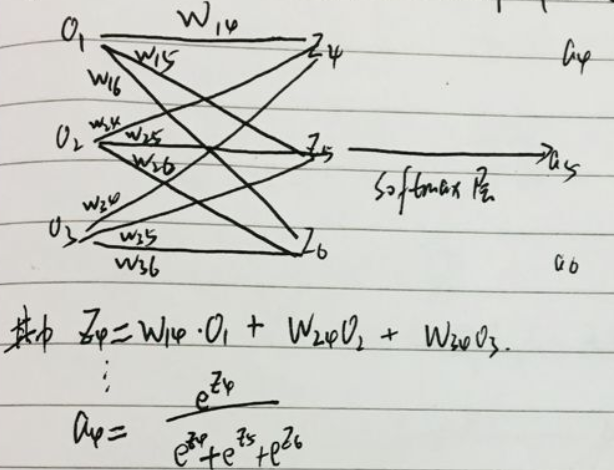 O₁ W₁₄ Z₄ a₄
W₁₅
W₁₆
W₂₄
O₂ W₂₅ Z₅ a₅
W₂₆ softmax层
W₃₄
O₃ W₃₅ Z₆ a₆
W₃₆
其中 Z₄ = W₁₄·O₁ + W₂₄O₂ + W₃₄O₃.
⋮
a₄ = e^{Z₄} / e^{Z₄}+e^{Z₅}+e^{Z₆}